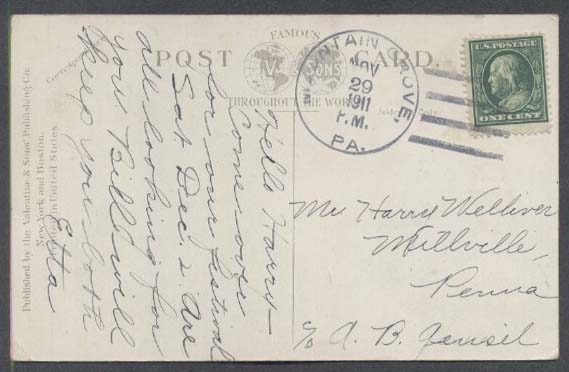 POST CARD.
FAMOUS
V & SONS
THROUGHOUT THE WORLD
Correspon
Address Only
MOUNTAIN GROVE,
NOV
29
1911
P.M.
PA.
U.S. POSTAGE
ONE CENT
Published by the Valentine & Sons' Publishing Co.
New York and Boston.
Printed in United States
Hello Harry
Come over
for our festival
Sat. Dec. 2. Are
all looking for
you. Bill will
keep you both
Etta
Mr Harry Welliver
Millville,
Penna
c/o A. B. Gensel